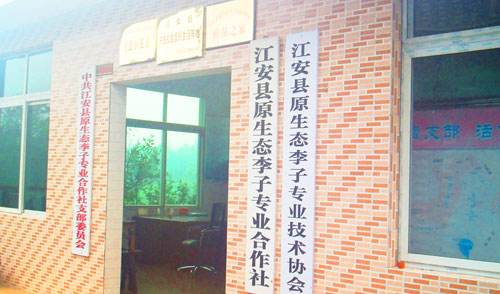 中共江安县原生态李子专业合作社支部委员会
江安县原生态李子专业合作社
江安县原生态李子专业技术协会
支部 活